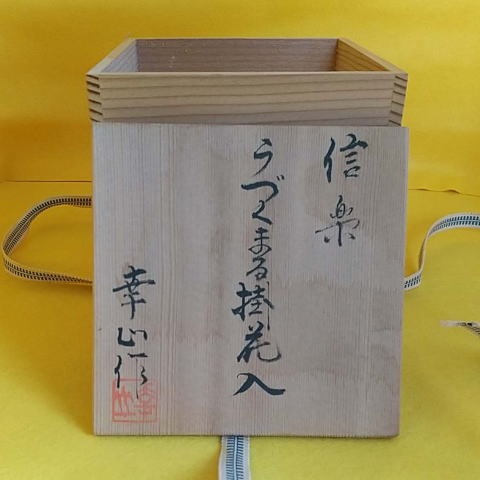 信楽
うづくまる掛花入
幸山作